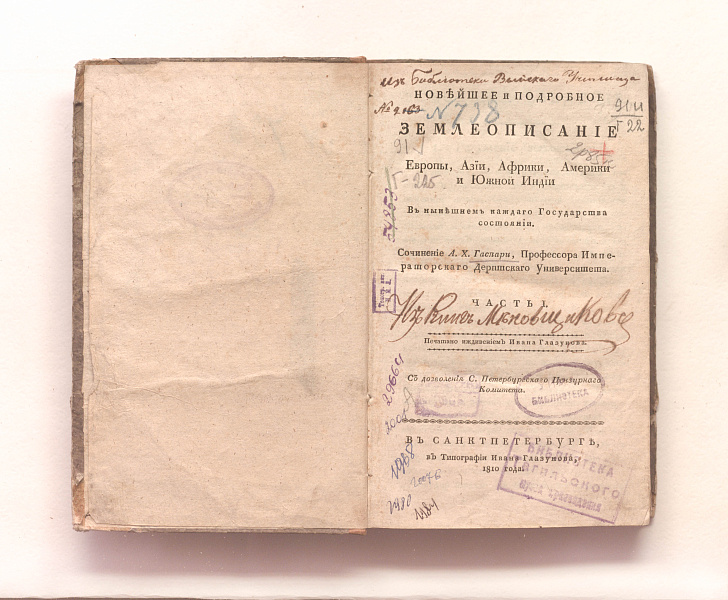 изъ Библіотеки Выйскаго Училища
НОВѢЙШЕЕ и ПОДРОБНОЕ
№ 738
91И
Г 22
ЗЕМЛЕОПИСАНІЕ
Европы, Азіи, Африки, Америки
и Южной Индіи
Г-225
Въ нынѣшнемъ каждаго Государства
состояніи.
54263
Сочиненіе А. Х. Гаспари, Профессора Импе-
раторскаго Дерптскаго Университета.
ЧАСТЬ I.
Изъ Книгъ Меновщикова
Печатано иждивеніемъ Ивана Глазунова.
29664
Съ дозволенія С. Петербургскаго Цензурнаго
Комитета.
БИБЛИОТЕКА
ВЪ САНКТПЕТЕРБУРГѢ,
въ Типографіи Ивана Глазунова,
1810 года.
БИБЛИОТЕКА
ТАГИЛЬСКОГО
МУЗЕЯ КРАЕВЕДЕНИЯ
1968
1980
1984